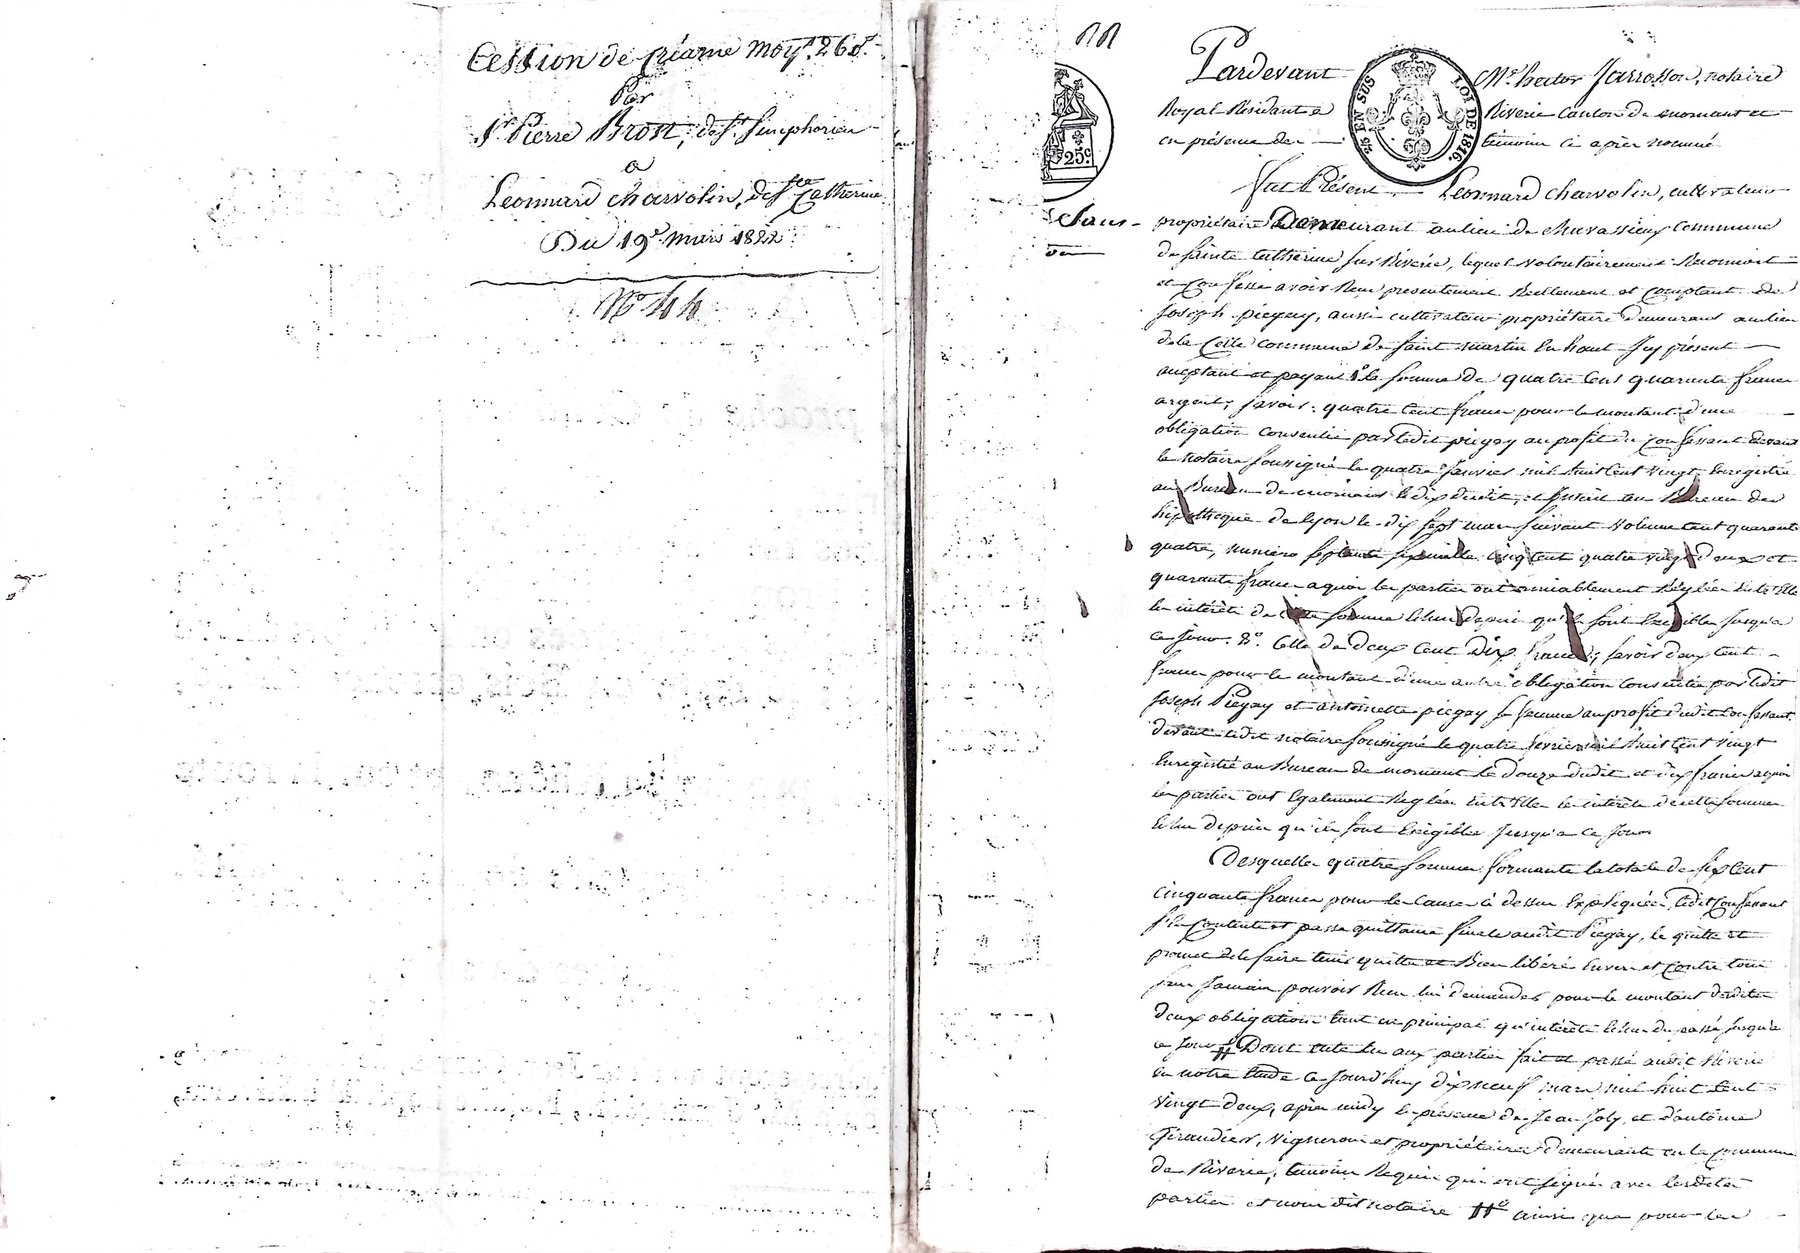 Cession de créance moyt. 260f.
Par
Sr. Pierre Brost, de St. Simphorien
a
Leonnard charvolin, de Ste Catherine
Du 19e. mars 1822
No. 44
25c.
25 EN SUS
LOI DE 1816.
Pardevant Me. hector Jarrosson, notaire
Royal Résidant a Riverie Canton de mornant et
en présence des témoins ci après nommé
fut Présent Leonnard charvolin, cultivateur
propriétaire Demeurant au lieu de chavassieux Commune
de Sainte Catherine sur Riverie, lequel volontairement Reconnoit
et Confesse avoir Reçu presentement Reellement et comptant de
Joseph piegay, aussi cultivateur propriétaire demeurant au lieu
de la Celle commune de Saint martin En haut Jcy présent
acceptant et payant 1o. la somme de quatre Cent quarante francs
argent, savoir: quatre Cent francs pour le montant d'une
obligation Consentie par ledit piegay au profit du Confessant devant
le notaire soussigné le quatre Janvier mil huit Cent vingt Enregistré
au Bureau de mornant le dix dudit, et Inscrit au Bureau des
hipotheque de lyon le dix sept mars suivant volume Cent quarante
quatre, numero cinq Cent quatre vingt deux et
quarante francs a quoi les parties ont amiablement Réglée Entr'Elle
les intérêts de cette somme Echus depuis qu'ils sont Exigibles Jusqu'a
ce Jour. 2o. Celle de Deux Cent Dix francs; savoir deux Cent
francs pour le montant d'une autre obligation Consentie par ledit
Joseph Piegay et antoinette piegay sa femme au profit dudit Confessant
devant ledit notaire soussigné le quatre fevrier mil huit Cent vingt
Enregistré au Bureau de mornant le Douze dudit et dix francs a quoi
les parties ont Egalement Reglée Entr'Elle les intérêts de cette somme
Echus depuis qu'ils sont Exigibles Jusqu'a ce Jour
Desquelles quatre sommes formante la totale de six Cent
cinquante francs pour les Causes ci dessus Expliquées, ledit Confessant
s'En Contente et passe quittance finale audit Piegay, le quitte et
promet de le faire tenir quitte et Bien libéré Envers et Contre tous
sans Jamais pouvoir Rien lui demander pour le montant desdites
deux obligation tant en principal qu'intérêts Echus du passé Jusqu'a
ce Jour # Dont acte lu aux parties fait et passé audit Riverie
En notre Etude ce Jourd'huy dix neuf mars mil huit Cent
vingt deux, après midy En présence de Jean Joly et d'antoine
Giraudier, vignerons et propriétaires demeurants En la Commune
de Riverie, témoins Requis qui ont signés avec lesdites
parties et nous dit notaire # ainsi que pour les